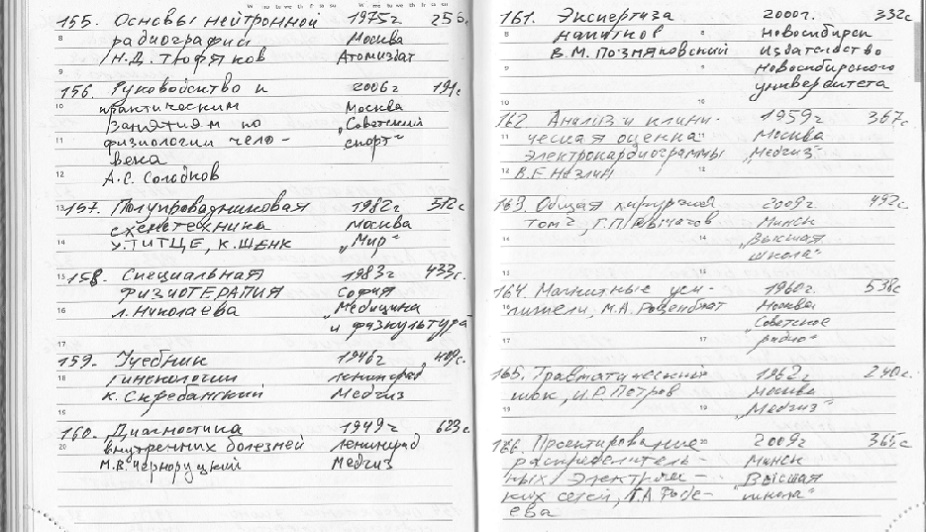 155. Основы нейтронной 1975г 256.
радиографии Москва
Н.Д. Тюфяков Атомиздат
156. Руководство к 2006г 191с
практическим Москва
занятиям по "Советский
физиологии чело- спорт"
века
А.С. Солодков
157. Полупроводниковая 1982г 512с
схемотехника Москва
У. ТИТЦЕ, К. ШЕНК "Мир"
158. Специальная 1983г 433с.
ФИЗИОТЕРАПИЯ София
Л. Николаева "Медицина
и физкультура"
159. Учебник 1946г 409с.
гинекологии Ленинград
К. Скробанский Медгиз
160. Диагностика 1949г 623с.
внутренних болезней Ленинград
М.В. Черноруцкий Медгиз
161. Экспертиза 2000г. 332с
напитков Новосибирск
В.М. Позняковский издательство
Новосибирского
университета
162 Анализ и клини- 1959г 367с
ческая оценка Москва
электрокардиограммы "Медгиз"
В.Е. Незлин
163. Общая хирургия 2009г 492с
том 2, Г.П. Рычагов Минск
"Высшая
школа"
164. Магнитные уси- 1960г. 538с
лители, М.А. Розенблат Москва
"Советское
радио"
165. Травматический 1962г 240с.
шок, И.Р. Петров Москва
"Медгиз"
166. Проектирование 2009г 365с
распределитель- Минск
ных электриче- "Высшая
ких сетей, Г.А. школа"
ева